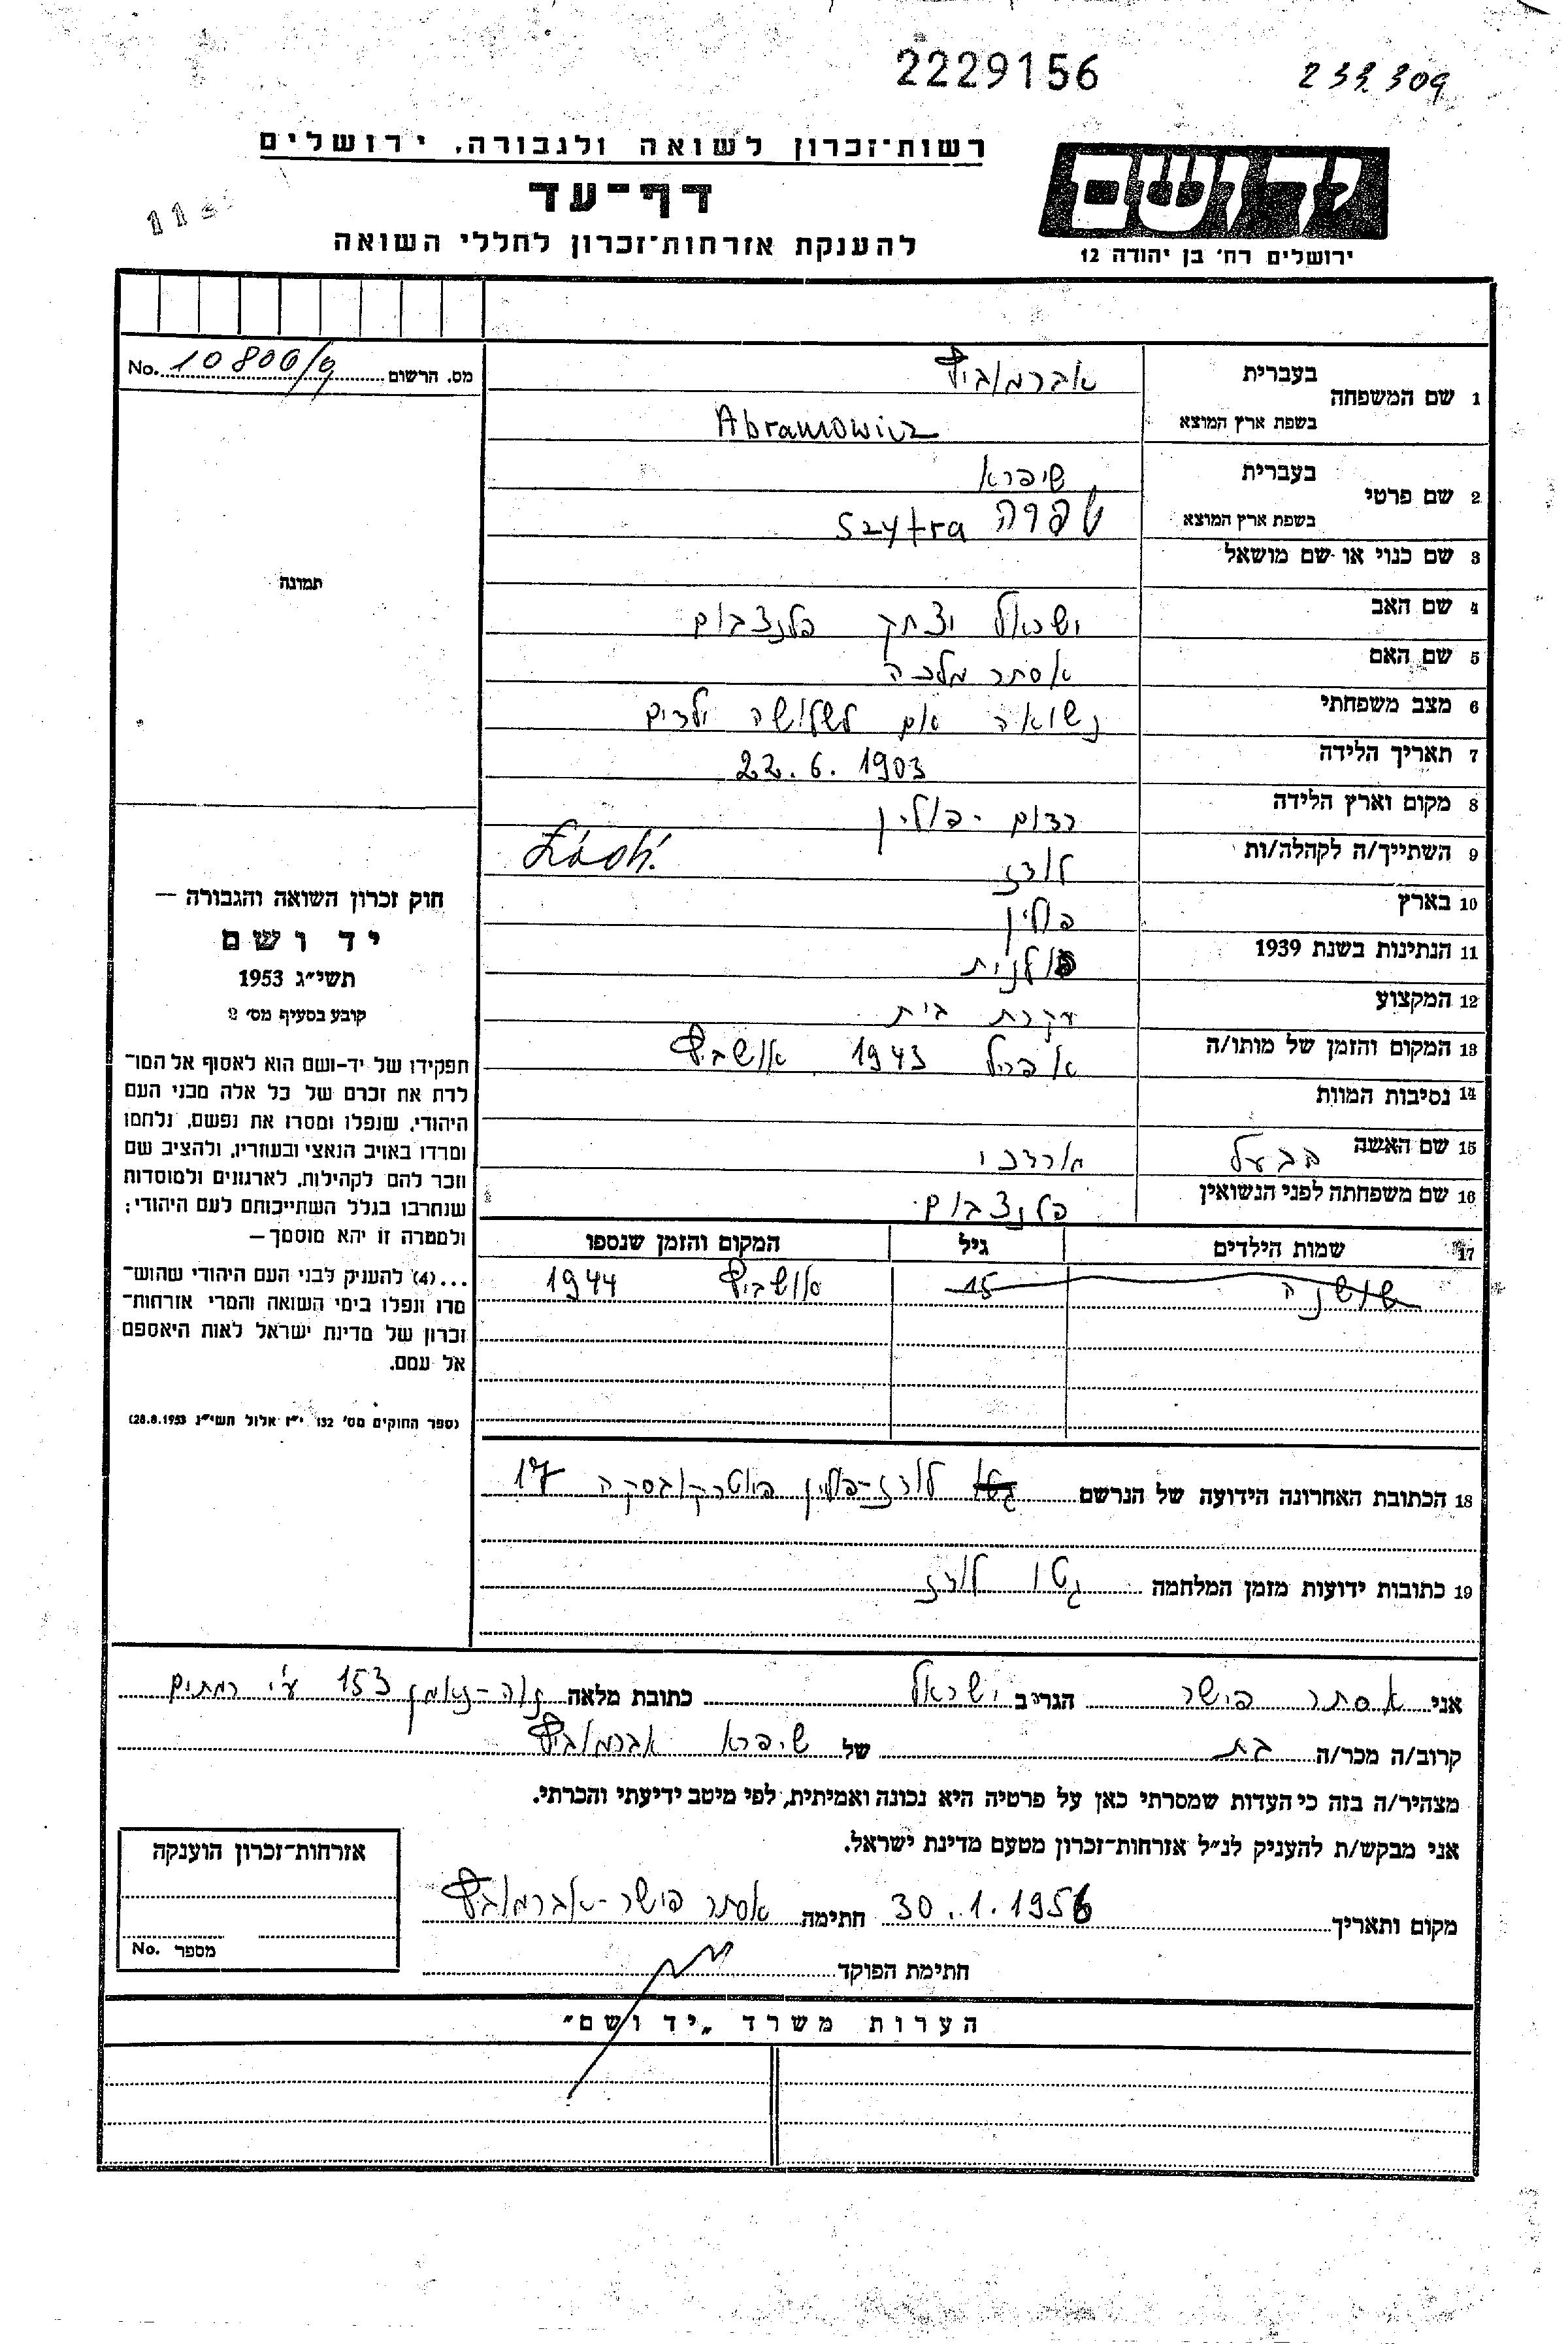 2229156
233.309
רשות־זכרון לשואה ולגבורה, ירושלים
דף־עד
להענקת אזרחות־זכרון לחללי השואה
יד ושם
ירושלים רח' בן יהודה 12
מס. הרשום 10806/9 No.
1 שם המשפחה בעברית אברמוביץ
בשפת ארץ המוצא Abramowicz
2 שם פרטי בעברית שיפרא
בשפת ארץ המוצא שפרה Szyfra
3 שם כנוי או שם מושאל
4 שם האב ישראל יצחק פלנצבוים
5 שם האם אסתר מלכה
6 מצב משפחתי נשואה אם לשלושה ילדים
7 תאריך הלידה 22.6.1903
8 מקום וארץ הלידה רדום - פולין
9 השתייך/ה לקהלה/ות לודז Łódź
10 בארץ פולין
11 הנתינות בשנת 1939 פולנית
12 המקצוע עקרת בית
13 המקום והזמן של מותו/ה אפריל 1943 אושביץ
14 נסיבות המוות
15 שם האשה הבעל מרדכי
16 שם משפחתה לפני הנשואין פלנצבוים
17 שמות הילדים גיל המקום והזמן שנספו
שושנה 15 אושביץ 1944
תמונה
חוק זכרון השואה והגבורה —
יד ושם
תשי״ג 1953
קובע בסעיף מס' 2
תפקידו של יד-ושם הוא לאסוף אל המו־
לדת את זכרם של כל אלה מבני העם
היהודי, שנפלו ומסרו את נפשם, נלחמו
ומרדו באויב הנאצי ובעוזריו, ולהציב שם
וזכר להם לקהילות, לארגונים ולמוסדות
שנחרבו בגלל השתייכותם לעם היהודי;
ולמטרה זו יהא מוסמך—
...(4) להעניק לבני העם היהודי שהוש־
מדו ונפלו בימי השואה והמרי אזרחות־
זכרון של מדינת ישראל לאות היאספם
אל עמם.
(ספר החוקים מס' 132 י״ז אלול תשי״ג 28.8.1953)
18 הכתובת האחרונה הידועה של הנרשם לודז-פולין פיוטרקובסקה 17
19 כתובות ידועות מזמן המלחמה גטו לודז
אני אסתר פישר הגר/ים ישראל כתובת מלאה נוה-נאמן 153 ע״י רמתים
קרוב/ה מכר/ה בת של שיפרא אברמוביץ
מצהיר/ה בזה כי העדות שמסרתי כאן על פרטיה היא נכונה ואמיתית, לפי מיטב ידיעתי והכרתי.
אני מבקש/ת להעניק לנ״ל אזרחות־זכרון מטעם מדינת ישראל.
מקום ותאריך 30.1.1956 חתימה אסתר פישר-אברמוביץ
חתימת הפוקד
אזרחות־זכרון הוענקה
מספר No.
הערות משרד „יד ושם״